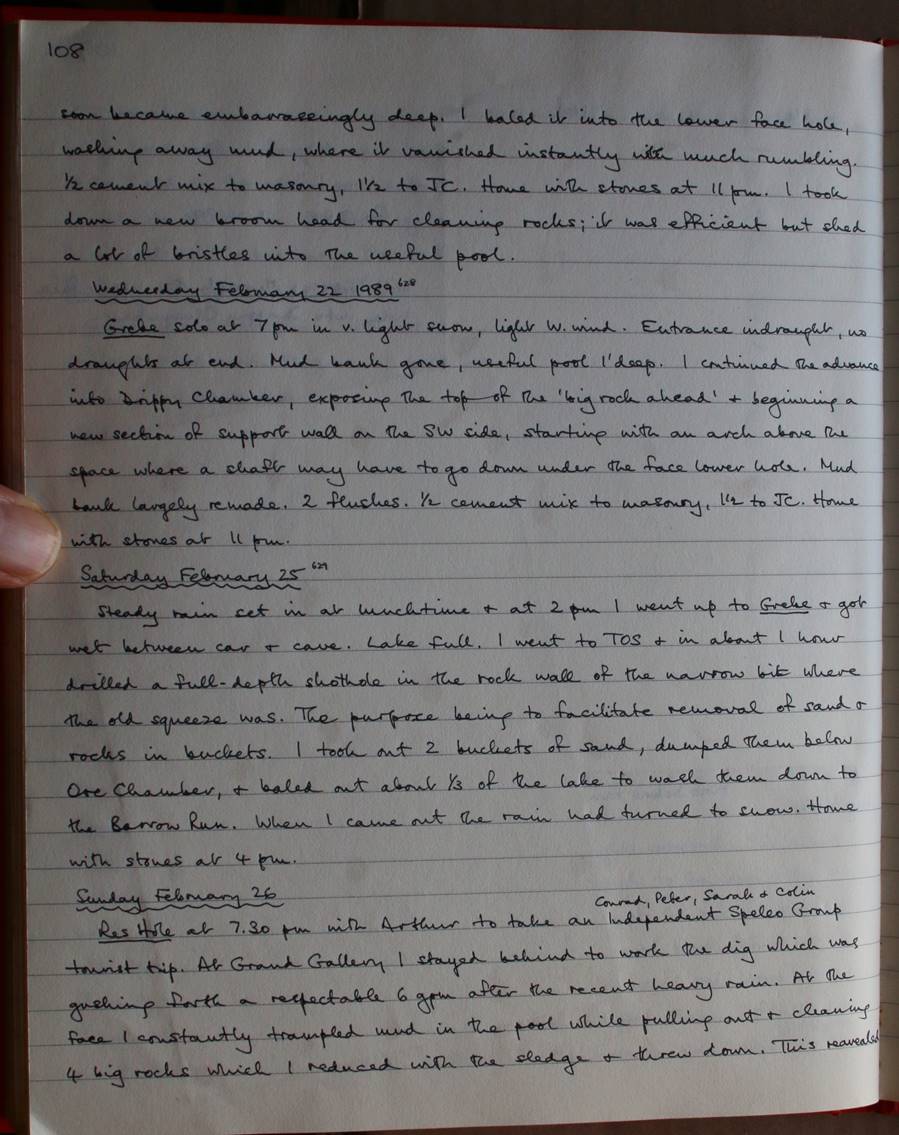 108
soon became embarrassingly deep. I baled it into the lower face hole,
washing away mud, where it vanished instantly with much rumbling.
½ cement mix to masonry, 1½ to JC. Home with stones at 11 pm. I took
down a new broom head for cleaning rocks; it was efficient but shed
a lot of bristles into the useful pool.
Wednesday February 22 1989 628
Grebe solo at 7 pm in v. light snow, light W. wind. Entrance indraught, no
draughts at end. Mud bank gone, useful pool 1' deep. I continued the advance
into Drippy Chamber, exposing the top of the 'big rock ahead' + beginning a
new section of support wall on the SW side, starting with an arch above the
space where a shaft may have to go down under the face lower hole. Mud
bank largely remade. 2 flushes. ½ cement mix to masonry, 1½ to JC. Home
with stones at 11 pm.
Saturday February 25 629
Steady rain set in at lunchtime + at 2 pm I went up to Grebe + got
wet between car + cave. Lake full. I went to TOS + in about 1 hour
drilled a full-depth shothole in the rock wall of the narrow bit where
the old squeeze was. The purpose being to facilitate removal of sand +
rocks in buckets. I took out 2 buckets of sand, dumped them below
Ore Chamber, + baled out about 1/3 of the lake to wash them down to
the Barrow Run. When I came out the rain had turned to snow. Home
with stones at 4 pm.
Sunday February 26
Conrad, Peter, Sarah + Colin
Res Hole at 7.30 pm with Arthur to take an Independent Speleo Group
tourist trip. At Grand Gallery I stayed behind to work the dig which was
gushing forth a respectable 6 gpm after the recent heavy rain. At the
face I constantly trampled mud in the pool while pulling out + cleaning
4 big rocks which I reduced with the sledge + threw down. This revealed